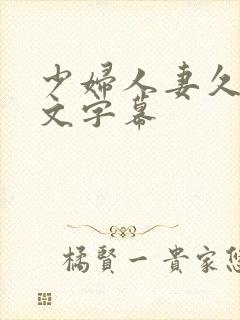 少婦人妻久
文字幕
橘賢一貴家悠